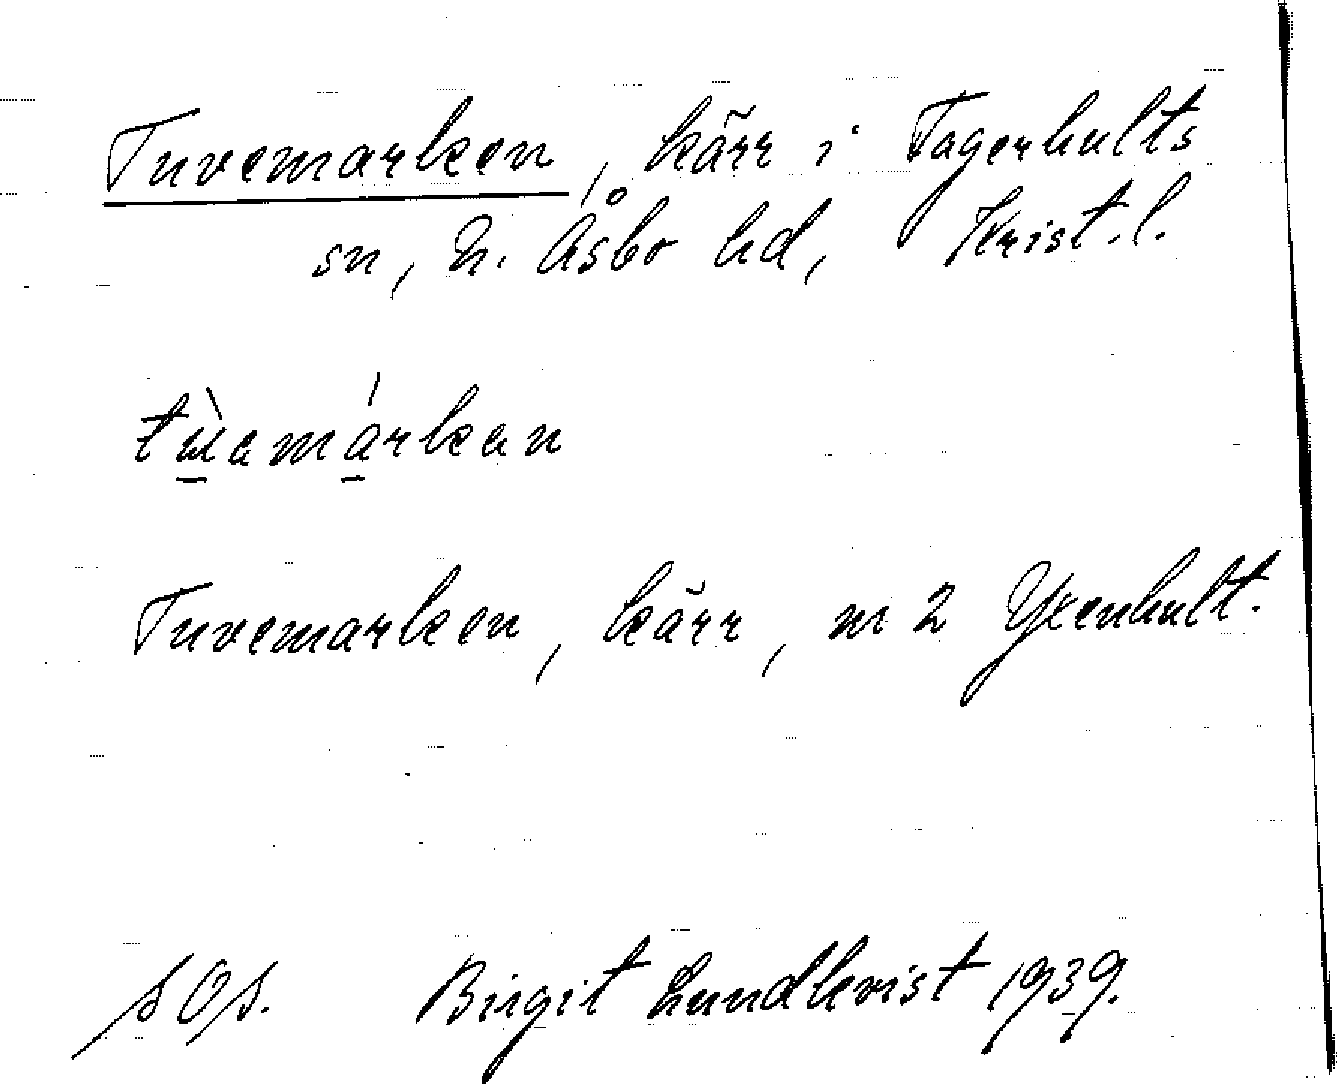 Tuvemarken, kärr i Fagerhults
sn, N. Åsbo hd, Krist. l.
tùamárkan
Tuvemarken, kärr, nr 2 Yxenhult.
Birgit Lundkvist 1939.